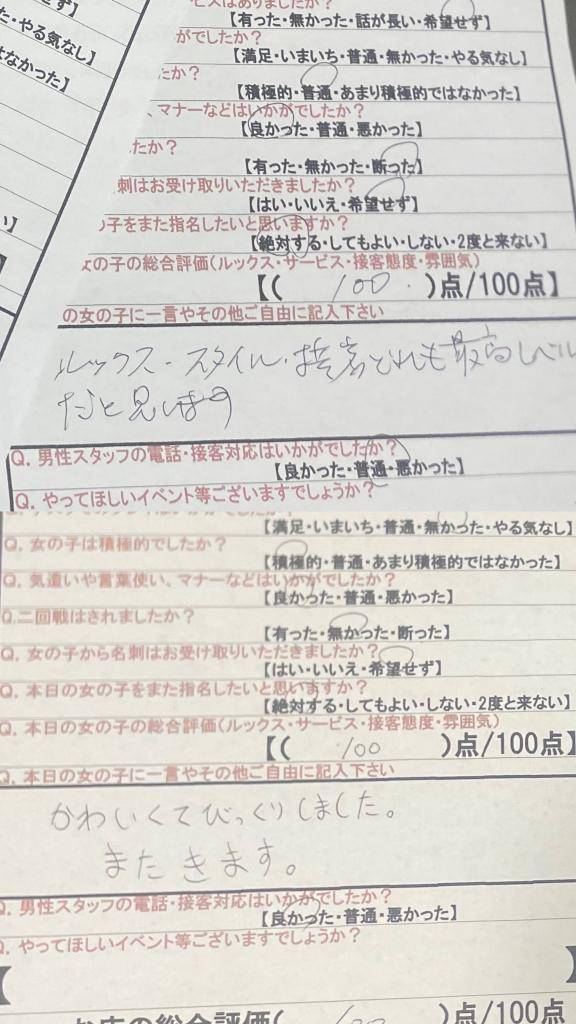 せず】
た・やる気なし】
はなかった】
ビスはありましたか？
【有った・無かった・話が長い・希望せず】
がでしたか？
【満足・いまいち・普通・無かった・やる気なし】
たか？
【積極的・普通・あまり積極的ではなかった】
、マナーなどはいかがでしたか？
【良かった・普通・悪かった】
たか？
【有った・無かった・断った】
刺はお受け取りいただきましたか？
【はい・いいえ・希望せず】
の子をまた指名したいと思いますか？
【絶対する・してもよい・しない・2度と来ない】
女の子の総合評価(ルックス・サービス・接客態度・雰囲気)
【( 100 )点/100点】
の女の子に一言やその他ご自由に記入下さい
ルックス・スタイル・接客どれも最高レベル
だと思います
Q. 男性スタッフの電話・接客対応はいかがでしたか？
【良かった・普通・悪かった】
Q. やってほしいイベント等ございますでしょうか？
【満足・いまいち・普通・無かった・やる気なし】
Q. 女の子は積極的でしたか？
【積極的・普通・あまり積極的ではなかった】
Q. 気遣いや言葉使い、マナーなどはいかがでしたか？
【良かった・普通・悪かった】
Q.二回戦はされましたか？
【有った・無かった・断った】
Q. 女の子から名刺はお受け取りいただきましたか？
【はい・いいえ・希望せず】
Q. 本日の女の子をまた指名したいと思いますか？
【絶対する・してもよい・しない・2度と来ない】
Q. 本日の女の子の総合評価(ルックス・サービス・接客態度・雰囲気)
【( 100 )点/100点】
Q. 本日の女の子に一言やその他ご自由に記入下さい
かわいくてびっくりしました。
またきます。
Q. 男性スタッフの電話・接客対応はいかがでしたか？
【良かった・普通・悪かった】
Q. やってほしいイベント等ございますでしょうか？
【 】
お店の総合評価( 100 )点/100点